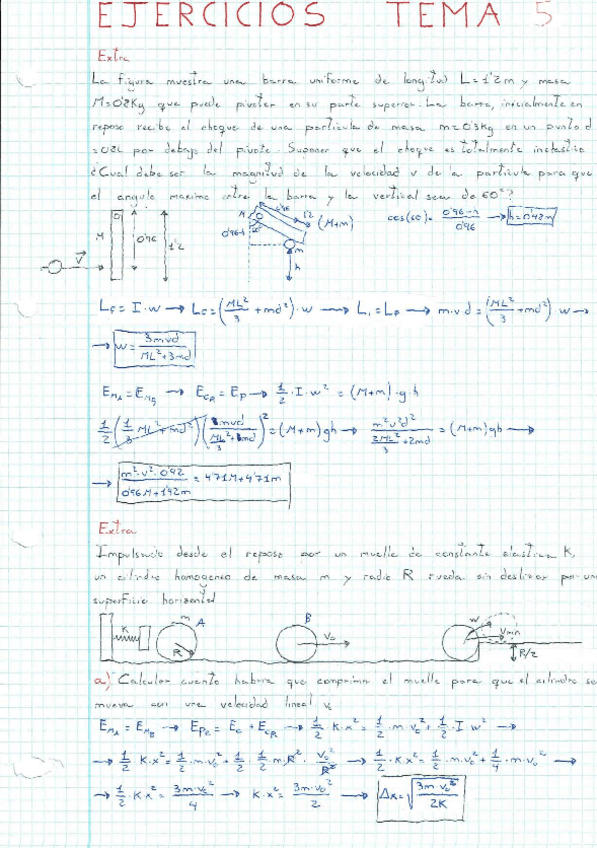 EJERCICIOS TEMA 5
Extra
La figura muestra una barra uniforme de longitud L=1'2m y masa
M=0'8Kg que puede pivotar en su parte superior. La barra, inicialmente en
reposo recibe el choque de una particula de masa m=0'3Kg en un punto d
=0'8L por debajo del pivote. Suponer que el choque es totalmente inelastico
¿Cual debe ser la magnitud de la velocidad v de la particula para que
el angulo maximo entre la barra y la vertical sea de 60º?
M 0'96 1'2 V
0'96 1'2 (M+m) 0'96-h m h
cos(60)= (0'96-h)/0'96 → h=0'48m
L_F = I·w → L_F = (ML²/3 + md²)·w → L_i = L_F → m·v·d = (ML²/3 + md²) w →
→ w = 3mvd/(ML²+3md)
E_MA = E_MB → E_CR = E_P → 1/2·I·w² = (M+m)·g·h
1/2 (1/3 ML² + md²) (mvd/(ML²/3+md))² = (M+m)gh → m²v²d²/(2ML²/3+2md) = (M+m)gh →
→ m²·v²·0'92/(0'96M+1'92m) = 4'71M+4'71m
Extra
Impulsado desde el reposo por un muelle de constante elastica K,
un cilindro homogeneo de masa m y radio R rueda sin deslizar por una
superficie horizontal
K m A R B V₀ w Vmin R/2
a) Calcular cuanto habra que comprimir el muelle para que el cilindro se
mueva con una velocidad lineal v₀
E_MA = E_MB → E_Pe = E_C + E_CR → 1/2 K·x² = 1/2·m·v₀² + 1/2·I·w² →
→ 1/2 K·x² = 1/2·m·v₀² + 1/2·1/2·m·R²·v₀²/R² → 1/2·K·x² = 1/2·m·v₀² + 1/4·m·v₀² →
→ 1/2·K·x² = 3m·v₀²/4 → K·x² = 3m·v₀²/2 → Δx = √(3m·v₀²/2K)